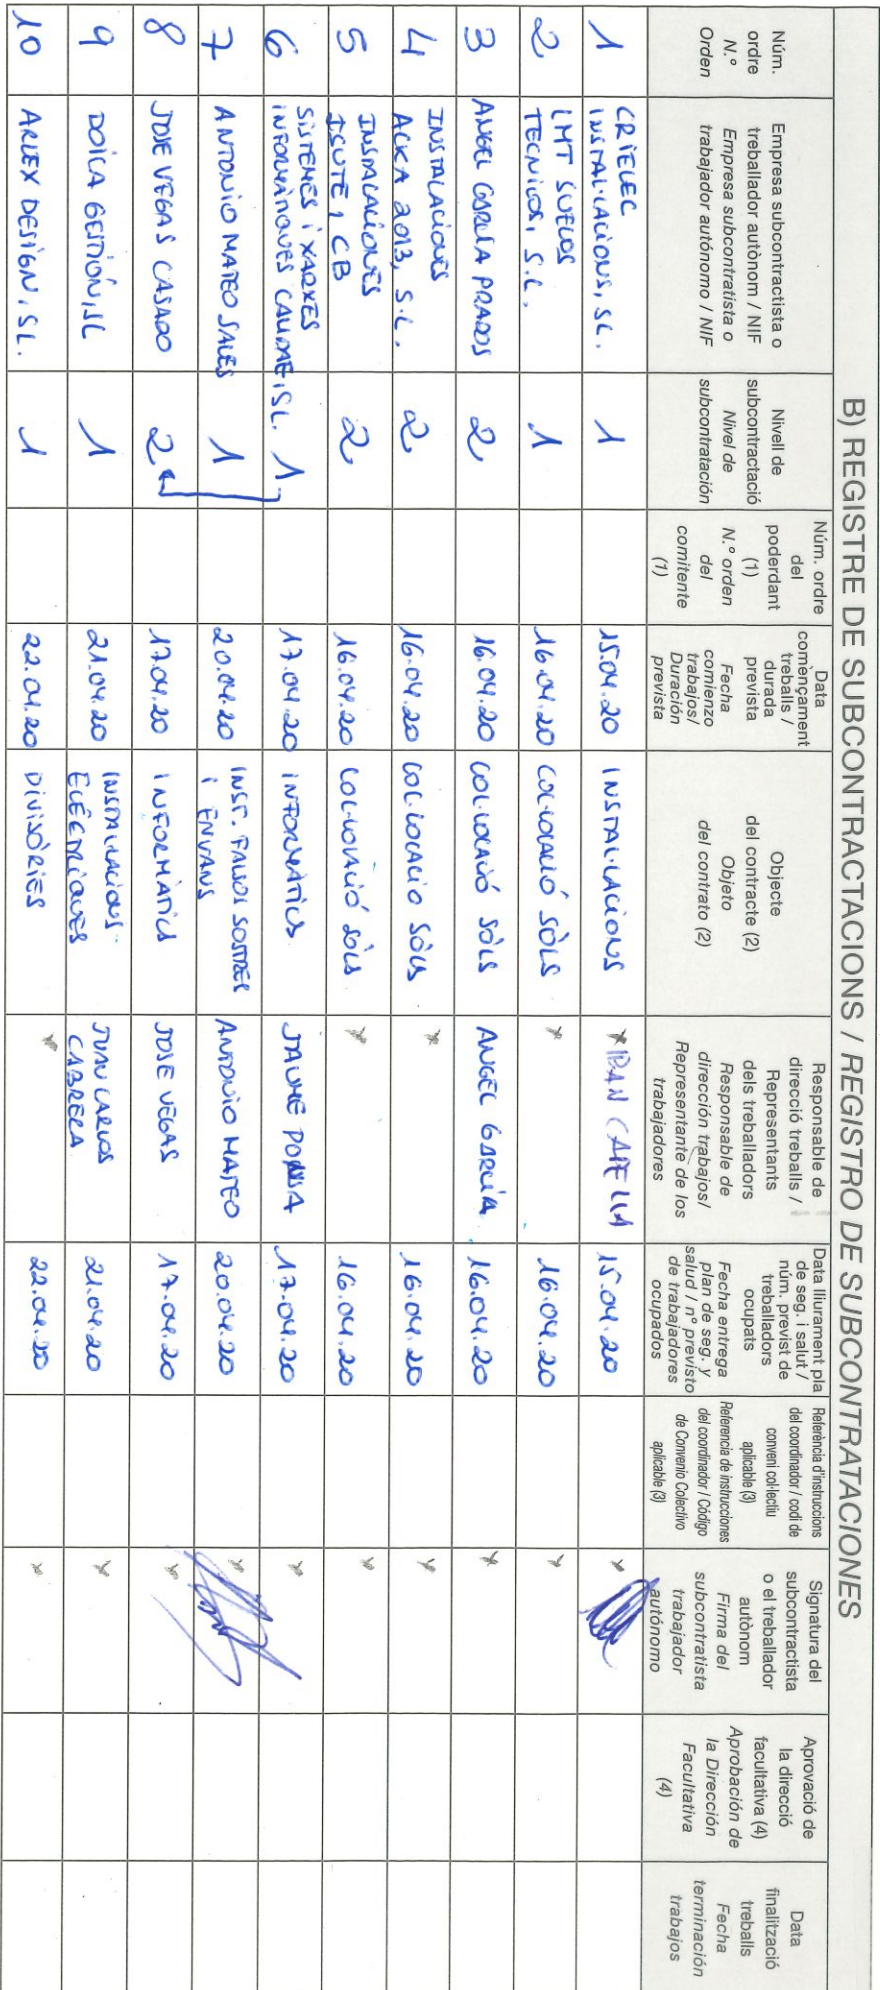 B) REGISTRE DE SUBCONTRACTACIONS / REGISTRO DE SUBCONTRATACIONES
Núm.
ordre
N.º
Orden
Empresa subcontractista o
treballador autònom / NIF
Empresa subcontratista o
trabajador autónomo / NIF
Nivell de
subcontractació
Nivel de
subcontratación
Núm. ordre
del
poderdant
(1)
N.º orden
del
comitente
(1)
Data
començament
treballs /
durada
prevista
Fecha
comienzo
trabajos/
Duración
prevista
Objecte
del contracte (2)
Objeto
del contrato (2)
Responsable de
direcció treballs /
Representants
dels treballadors
Responsable de
dirección trabajos/
Representante de los
trabajadores
Data lliurament pla
de seg. i salut /
núm. previst de
treballadors
ocupats
Fecha entrega
plan de seg. y
salud / nº previsto
de trabajadores
ocupados
Referència d'instruccions
del coordinador / codi de
conveni col·lectiu
aplicable (3)
Referencia de instrucciones
del coordinador / Código
de Convenio Colectivo
aplicable (3)
Signatura del
subcontractista
o el treballador
autònom
Firma del
subcontratista
trabajador
autónomo
Aprovació de
la direcció
facultativa (4)
Aprobación de
la Dirección
Facultativa
(4)
Data
finalització
treballs
Fecha
terminación
trabajos
1
CRITELEC
INSTAL·LACIONS, SL.
1
15.04.20
INSTAL·LACIONS
x IBAN CAPELLA
15.04.20
x
2
LMT SUELOS
TECNICOS, S.L.
1
16.04.20
COL·LOCACIÓ SÒLS
x
16.04.20
x
3
ANGEL GARCÍA PRADOS
2
16.04.20
COL·LOCACIÓ SÒLS
ANGEL GARCÍA
16.04.20
x
4
INSTALACIONES
ACKA 2013, S.L.
2
16.04.20
COL·LOCACIO SÒLS
x
16.04.20
x
5
INSTALACIONES
ISUTE, CB
2
16.04.20
COL·LOCACIÓ SÒLS
x
16.04.20
x
6
SISTEMES i XARXES
INFORMÀTIQUES CALIDAE, SL.
1
17.04.20
INFORMÀTICA
JAUME
17.04.20
x
7
ANTONIO MATEO SALES
1
20.04.20
INST. FALSOS SOSTRES
I ENVANS
ANTONIO MATEO
20.04.20
x
8
JOSE VEGAS CASADO
2
17.04.20
INFORMÀTICA
JOSE VEGAS
17.04.20
x
9
DOICA GESTIÓN, SL
1
21.04.20
INSTAL·LACIONS
ELÈCTRIQUES
JUAN CARLOS
CABRERA
21.04.20
x
10
ARLEX DESIGN, SL.
1
22.04.20
DIVISÒRIES
x
22.04.20
x